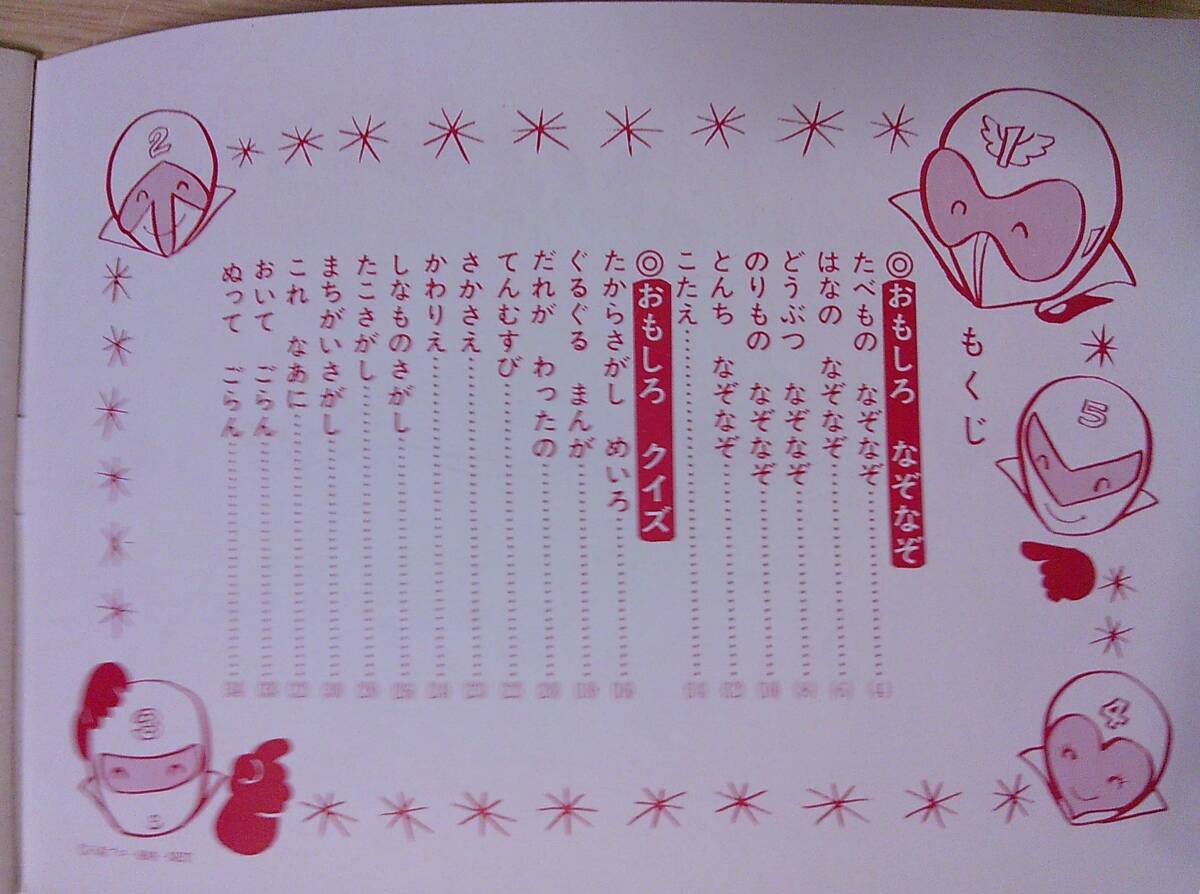 もくじ
◎おもしろ なぞなぞ
たべもの なぞなぞ……(4)
はなの なぞなぞ……(6)
どうぶつ なぞなぞ……(8)
のりもの なぞなぞ……(10)
とんち なぞなぞ……(12)
こたえ……(14)
◎おもしろ クイズ
たからさがし めいろ……(16)
ぐるぐる まんが……(18)
だれが わったの……(20)
てんむすび……(22)
さかさえ……
かわりえ……
しなものさがし……
たこさがし……
まちがいさがし……
これ なあに……
おいて ごらん……
ぬって ごらん……
2
5
3